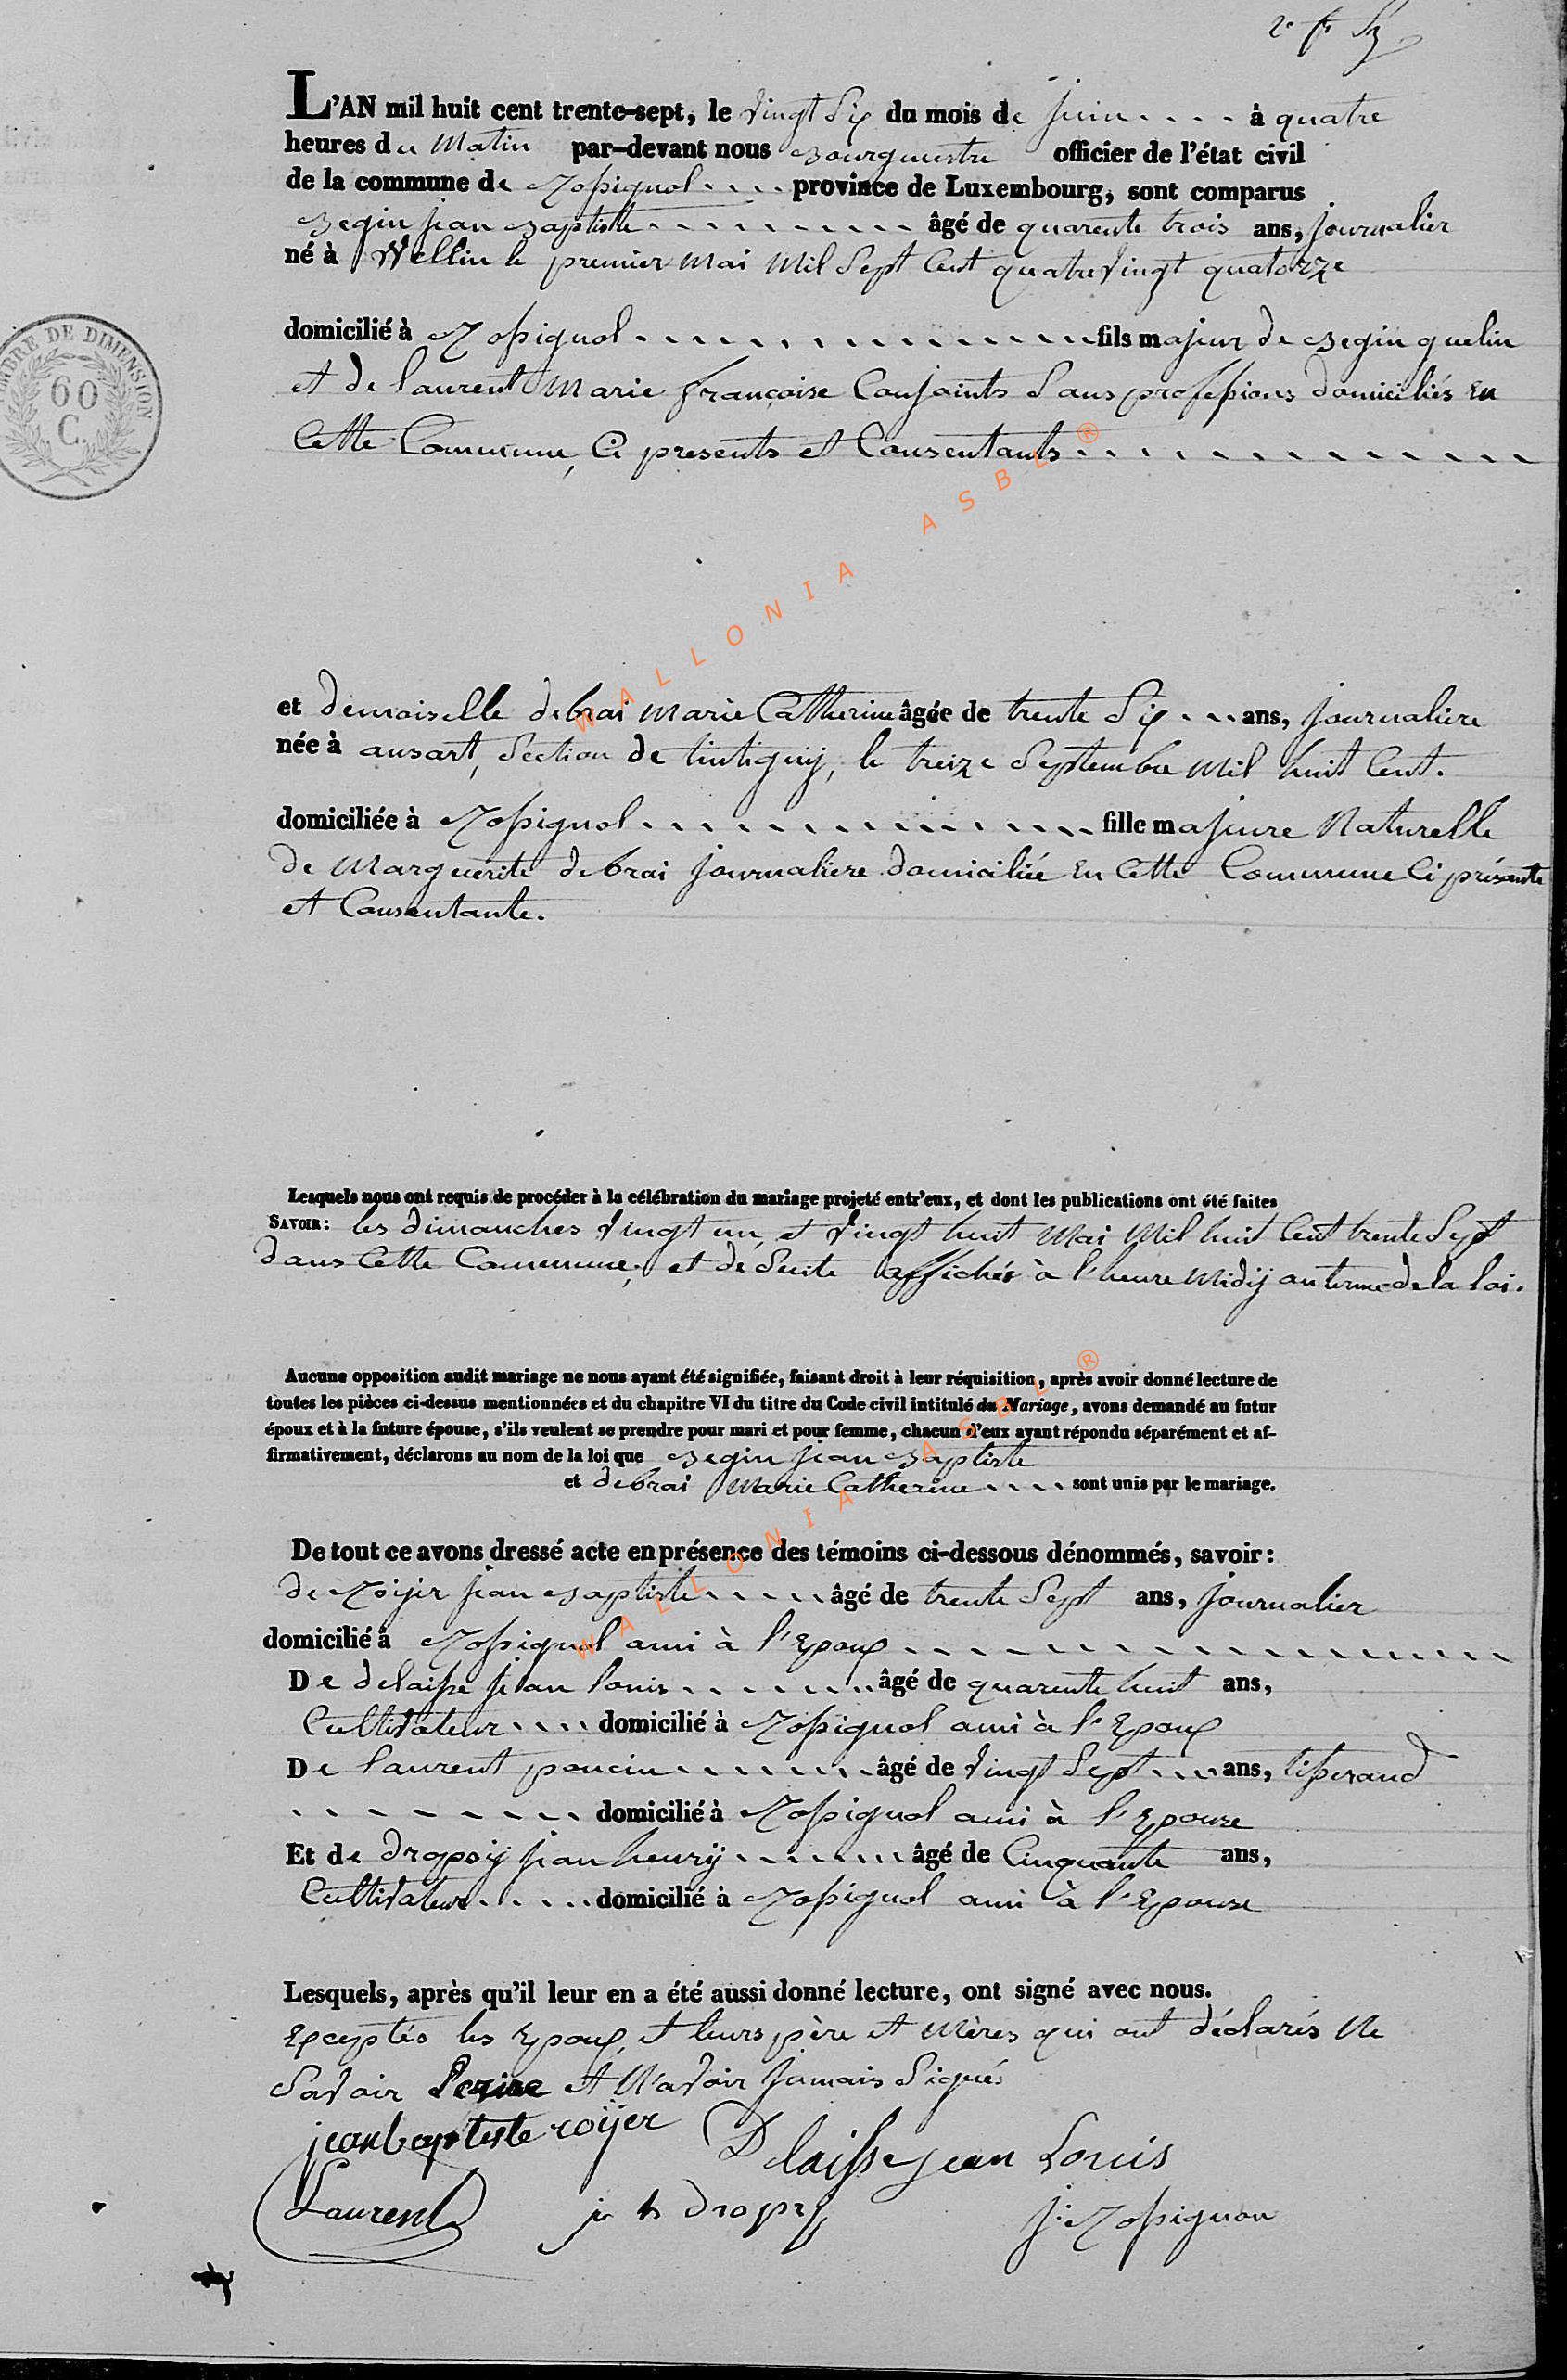 L'AN mil huit cent trente-sept, le vingt Six du mois de juin à quatre
heures du Matin par-devant nous Bourgmestre officier de l'état civil
de la commune de Rossignol province de Luxembourg, sont comparus
Begin jean Baptiste âgé de quarente trois ans, journalier
né à Wellin le premier Mai Mil Sept Cent quatre vingt quatorze
domicilié à Rossignol fils majeur de Begin quelin
et de laurent Marie françoise Conjoints Sans professions domiciliés En
Cette Commune, Ci presents et Consentants
TIMBRE DE DIMENSION
60
C.
WALLONIA ASBL ®
et demoiselle debrai Marie Catherine âgée de trente Six ans, journaliere
née à ansart, Section de tintignij, le treize Septembre Mil huit Cent.
domiciliée à Rossignol fille majeure Naturelle
de Marguerite debrai journaliere domiciliée En Cette Commune Ci présente
et Consentante.
Lesquels nous ont requis de procéder à la célébration du mariage projeté entr'eux, et dont les publications ont été faites
SAVOIR: les dimanches vingt un, et vingt huit Mai Mil huit Cent trente Sept
dans Cette Commune, et de Suite affichés à l'heure Midij au terme de la loi.
Aucune opposition audit mariage ne nous ayant été signifiée, faisant droit à leur réquisition, après avoir donné lecture de
toutes les pièces ci-dessus mentionnées et du chapitre VI du titre du Code civil intitulé du Mariage, avons demandé au futur
époux et à la future épouse, s'ils veulent se prendre pour mari et pour femme, chacun d'eux ayant répondu séparément et af-
firmativement, déclarons au nom de la loi que Begin jean Baptiste
et debrai Marie Catherine sont unis par le mariage.
WALLONIA ASBL ®
De tout ce avons dressé acte en présence des témoins ci-dessous dénommés, savoir:
de Roijer jean Baptiste âgé de trente Sept ans, journalier
domicilié à Rossignol ami à l'Epoux
De delaisse jean louis âgé de quarente huit ans,
Cultivateur domicilié à Rossignol ami à l'Epoux
De laurent poncin âgé de vingt Sept ans, tisserand
domicilié à Rossignol ami à l'Epouse
Et de dropsij jean henrij âgé de Cinquante ans,
Cultivateur domicilié à Rossignol ami à l'Epouse
Lesquels, après qu'il leur en a été aussi donné lecture, ont signé avec nous.
Exceptés les Epoux, et leurs père et mères qui ont déclarés Ne
Savoir Ecrire et N'avoir jamais Signés
jeanbaptiste roijer Dlaisse jean Louis
Laurent j h dropsy J: Rossignon